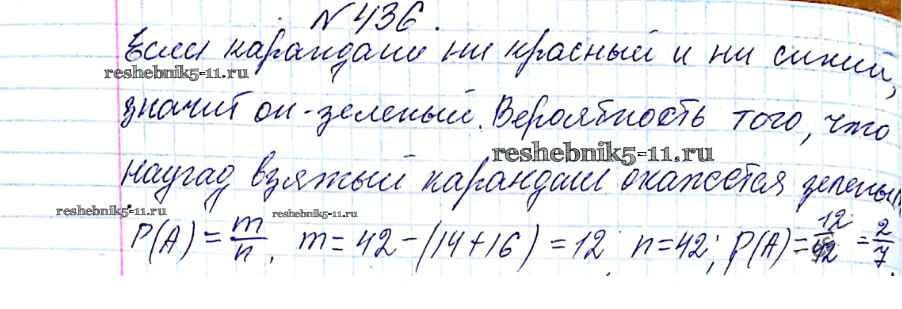 № 436.
Если карандаш ни красный и ни синий,
reshebnik5-11.ru
значит он - зеленый. Вероятность того, что
reshebnik5-11.ru
наугад взятый карандаш окажется зеленым
reshebnik5-11.ru
reshebnik5-11.ru
P(A) = m/n. m = 42 - (14 + 16) = 12; n = 42; P(A) = 12/42 = 2/7.